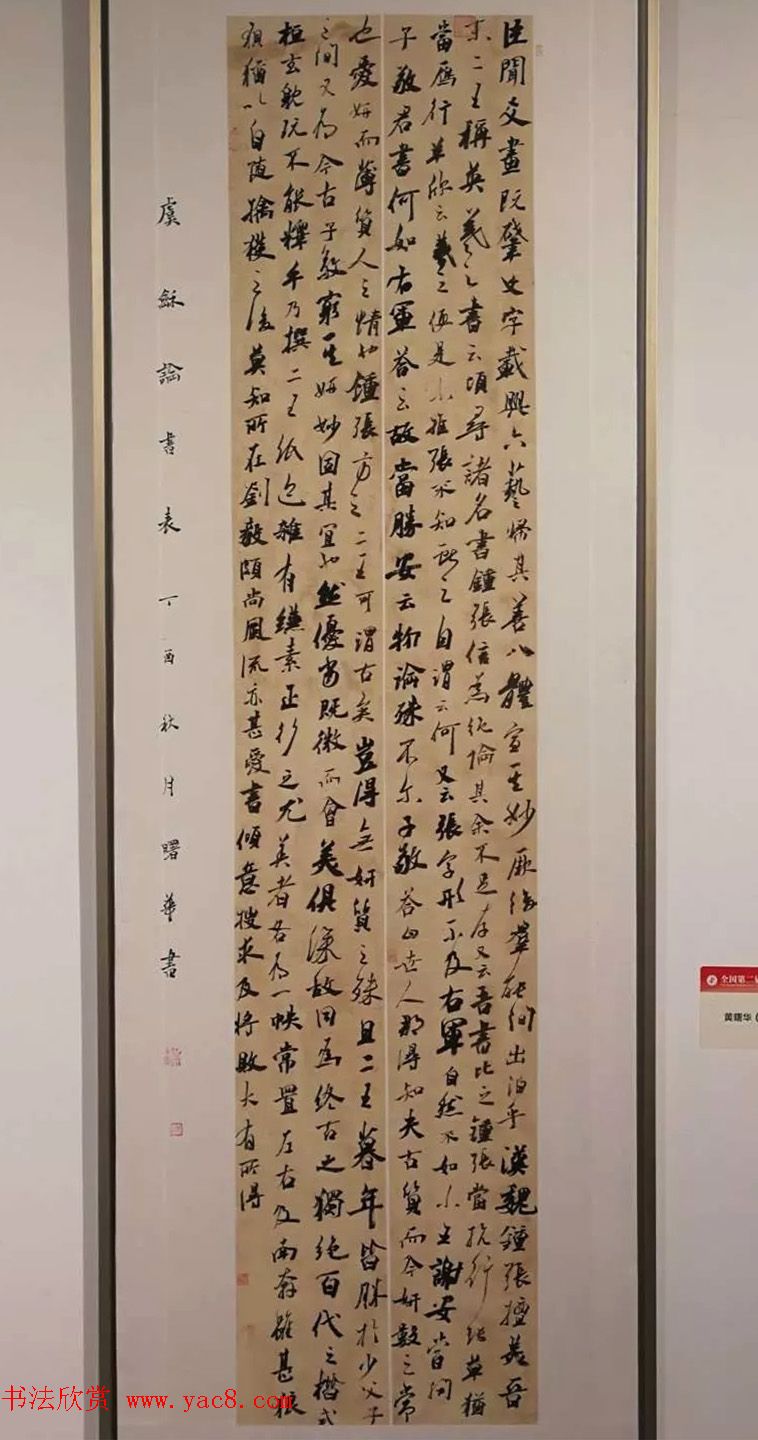 臣聞爻畫既肇文字載興六藝歸其善八體宣其妙厥後群能間出洎乎漢魏鍾張擅美晉
末二王稱英羲之書云頃尋諸名書鍾張信為絕倫其余不足存又云吾書比之鍾張當抗行張草猶
當雁行羊欣云羲之便是小推張不知獻之自謂云何又云張字形不及右軍自然不如小王謝安嘗問
子敬君書何如右軍答云故當勝安云物論殊不尔子敬答曰世人那得知夫古質而今妍數之常
也愛妍而薄質人之情也鍾張方之二王可謂古矣豈得無妍質之殊且二王暮年皆勝於少父子
之間又為今古子敬窮其妍妙固其宜也然優劣既微而會美俱深故同為終古之獨絕百代之楷式
桓玄躭玩不能釋手乃撰二王紙迹雜有縑素正行之尤美者各為一帙常置左右及南奔雖甚狼
狽猶以自随擒獲之後莫知所在劉毅頗尚風流亦甚愛書傾意搜求及將敗大有所得
虞龢論書表丁酉秋月曙華書
全国第二届
黄曙华
书法欣赏 www.yac8.com